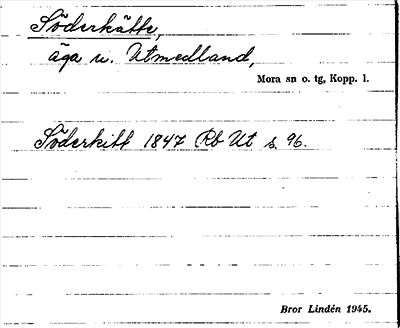 Söderkätte,
äga u. Utmedland,
Mora sn o. tg, Kopp. l.
Söderkitt 1847 Rb Ut s. 96.
Bror Lindén 1945.